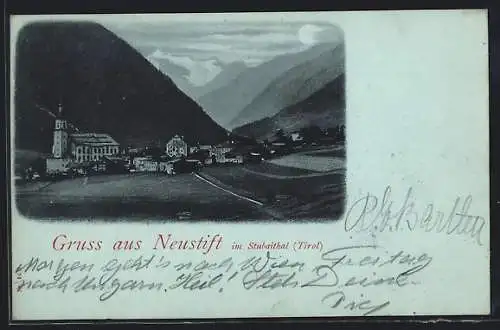 Gruss aus Neustift im Stubaithal (Tirol)
Morgen geht's nach Wien Freitag
nach Ungarn. Heil! Stets Deine